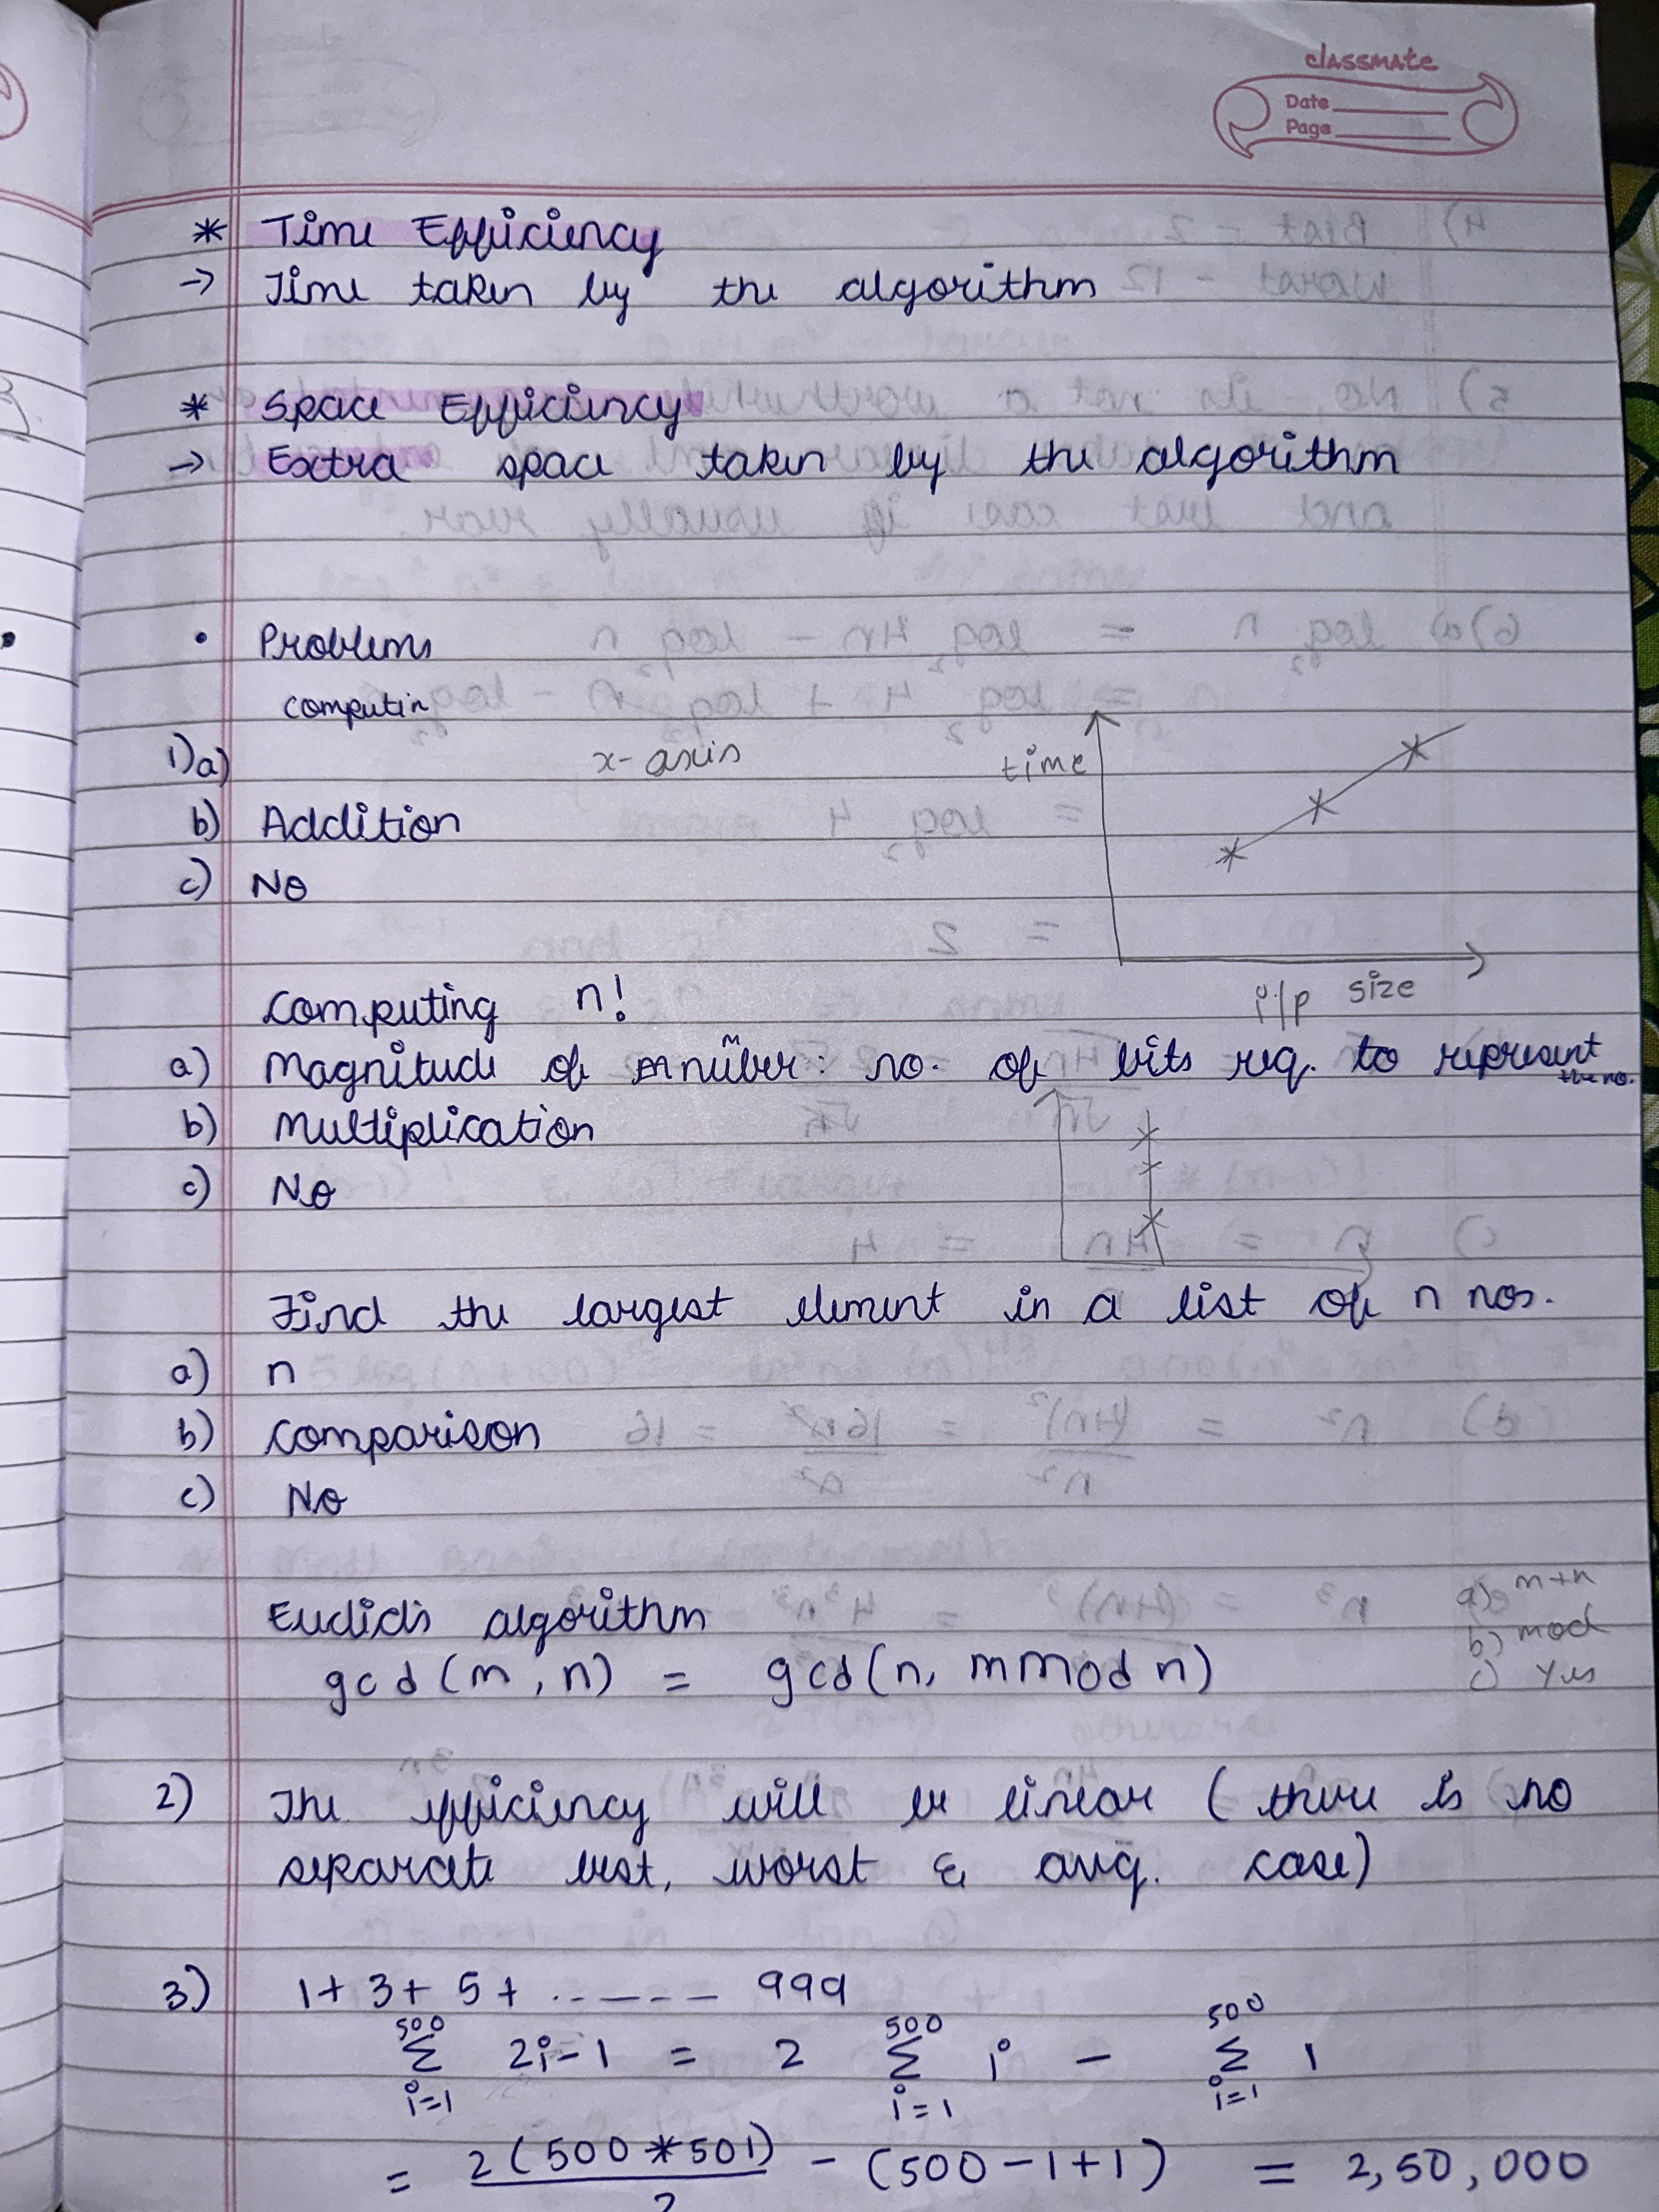 classmate
Date
Page
* Time Efficiency
→ Time taken by the algorithm
* Space Efficiency
→ Extra space taken by the algorithm
• Problems
computin
1) a) x-axis
time
b) Addition
c) No
i/p size
Computing n!
a) Magnitude of number: no. of bits req. to represent the no.
b) Multiplication
c) No
Find the largest element in a list of n nos.
a) n
b) Comparison
c) No
Euclid's algorithm
gcd(m, n) = gcd(n, m mod n)
a) m+n
b) mod
c) Yes
2) The efficiency will be linear (there is no
separate best, worst & avg. case)
3) 1 + 3 + 5 + ........ 999
500 Σ i=1 2i-1 = 2 500 Σ i=1 i - 500 Σ i=1 1
= 2(500*501)/2 - (500-1+1) = 2,50,000